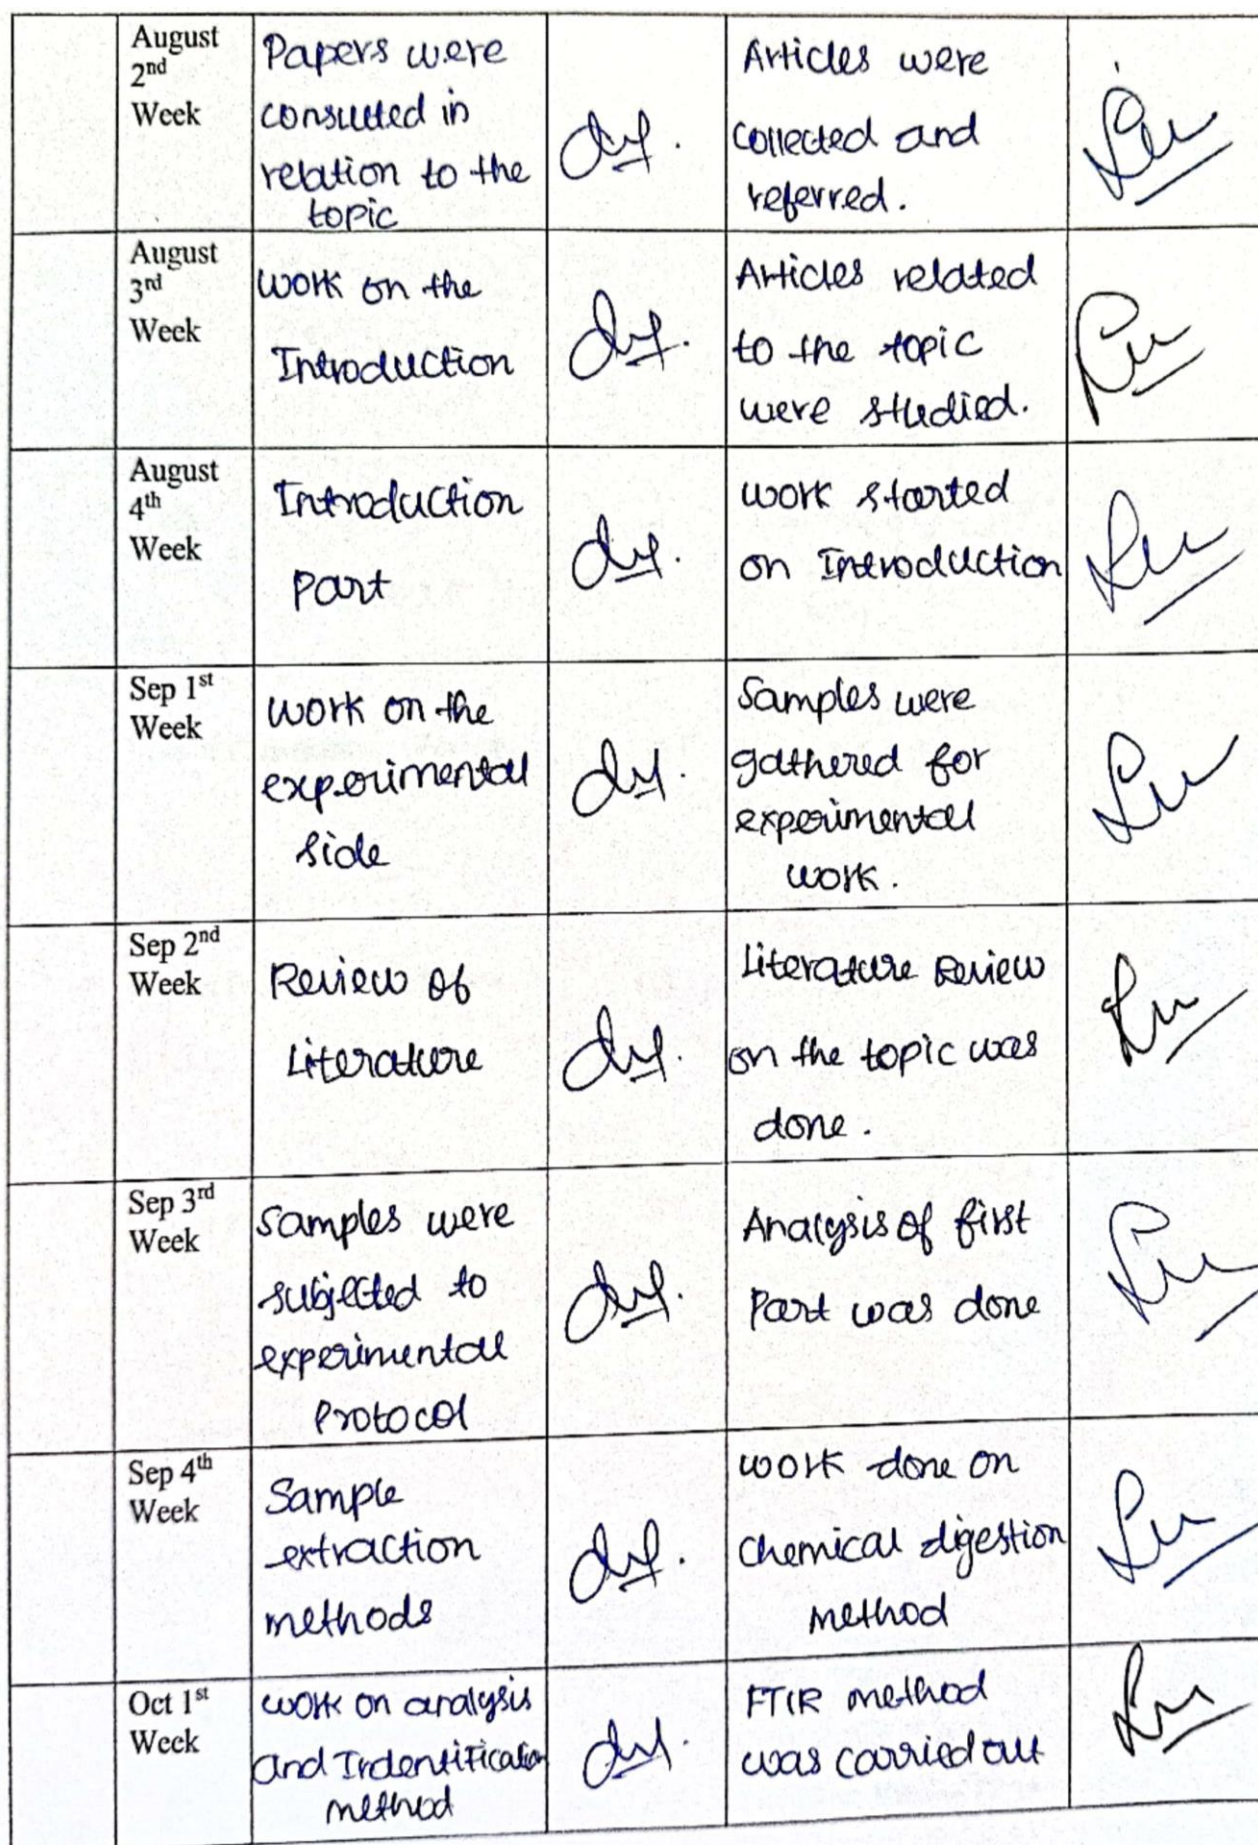 August
2nd
Week
Papers were
consulted in
relation to the
topic
Articles were
collected and
referred.
August
3rd
Week
Work on the
Introduction
Articles related
to the topic
were studied.
August
4th
Week
Introduction
Part
Work started
on Introduction
Sep 1st
Week
Work on the
experimental
side
Samples were
gathered for
experimental
work.
Sep 2nd
Week
Review of
Literature
Literature Review
on the topic was
done.
Sep 3rd
Week
Samples were
subjected to
experimental
Protocol
Analysis of first
Part was done
Sep 4th
Week
Sample
extraction
methods
Work done on
Chemical digestion
method
Oct 1st
Week
Work on analysis
and Indentification
method
FTIR method
was carried out